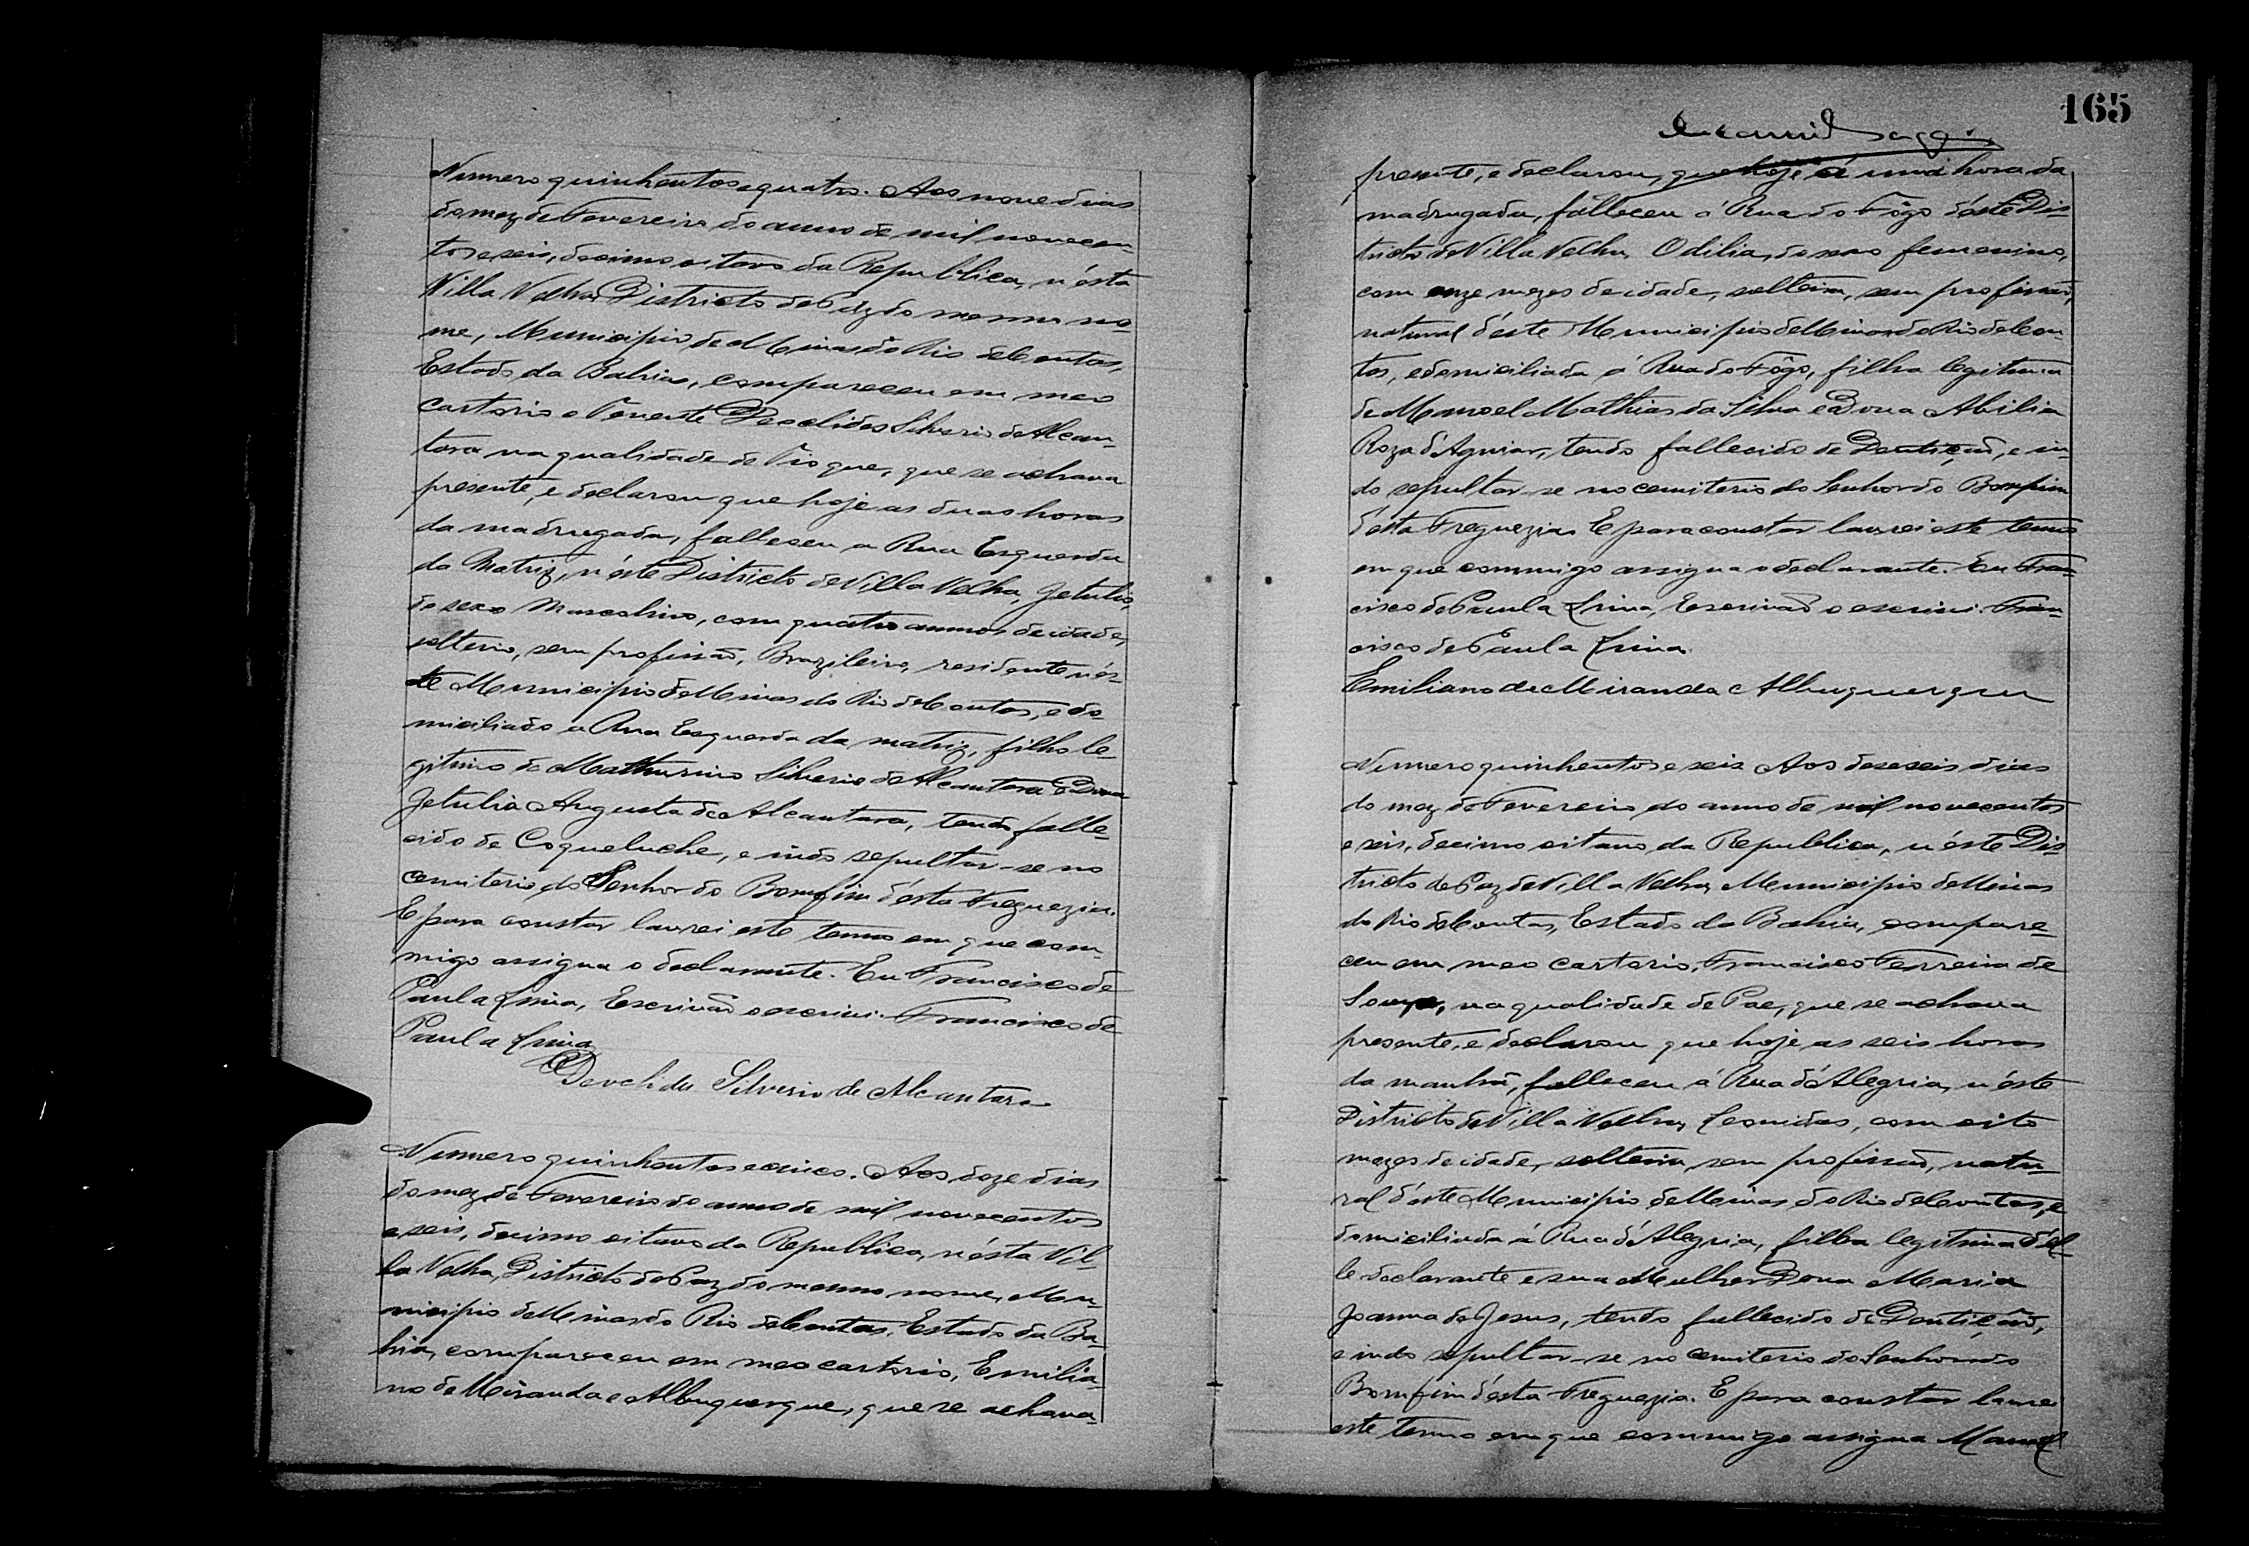 Numero quinhentos e quatro. Aos nove dias
do mez de Fevereiro do anno de mil novecen-
tos e seis, decimo oitavo da Republica, n'ésta
Villa Velha, Districto de Paz do mesmo no-
me, Municipio de Minas do Rio de Contas,
Estado da Bahia, compareceu em meo
Cartorio o Tenente Deoclides Silverio de Alcan-
tara na qualidade de Tio que, que se achava
presente, e declarou que hoje as duas horas
da madrugada, falleceu a Rua Esquerda
da Matriz, n'éste Districto de Villa Velha, Getulio,
do sexo Mascolino, com quatro annos de idade,
solteiro, sem profissão, Brazileiro, residente n'és-
te Municipio de Minas do Rio de Contas, e do-
miciliado a Rua Esquerda da matriz, filho le-
gitimo de Mathurino Silverio de Alcantara e Dona
Jetulia Augusta de Alcantara, tendo falle-
cido de Coqueluche, e indo sepultar-se no
cemiterio do Senhor do Bomfim d'ésta Freguezia.
E para constar lavrei este termo em que com-
migo assigna o declarante. Eu Francisco de
Paula Lima, Escrivão o escrivi. Francisco de
Paula Lima
Deoclides Silverio de Alcantara
Numero quinhentos e cinco. Aos doze dias
do mez de Fevereiro do anno de mil novecentos
e seis, decimo oitavo da Republica, n'ésta Vil-
la Velha, Districto de Paz do mesmo nome, Mu-
nicipio de Minas do Rio de Contas, Estado da Ba-
hia, compareceu em meo cartorio, Emilia-
no de Miranda e Albuquerque, que se achava-
165
presente, e declarou, que hoje á uma hora da
madrugada, falleceu á Rua do Fôgo d'éste Dis-
tricto de Villa Velha, Odilia, do sexo femenino,
com onze mezes de idade, solteira, sem profissão,
natural d'éste Municipio de Minas do Rio de Con-
tas, e domiciliada á Rua do Fôgo, filha legitima
de Manoel Mathias da Silva e Dona Abilia
Roza d'Aguiar, tendo fallecido de Dentição, e in-
do sepultar-se no cemiterio do Senhor do Bomfim
d'ésta Freguezia. E para constar lavrei este termo
em que commigo assigna o declarante. Eu Fran-
cisco de Paula Lima, Escrivão o escrivi. Fran-
cisco de Paula Lima.
Emiliano de Miranda e Albuquerque
Numero quinhentos e seis. Aos deseseis dias
do mez de Fevereiro do anno de mil novecentos
e seis, decimo oitavo da Republica, n'éste Dis-
tricto de Paz de Villa Velha, Municipio de Minas
do Rio de Contas, Estado da Bahia, compare-
ceu em meo cartorio, Francisco Ferreira de
Souza, na qualidade de Pae, que se achava
presente, e declarou que hoje as seis horas
da manhã, falleceu á Rua d'Alegria, n'éste
Districto de Villa Velha, Leonidas, com oito
mezes de idade, solteira, sem profissão, natu-
ral d'éste Municipio de Minas do Rio de Contas, e
domiciliada á Rua d'Alegria, filha legitima d'el-
le declarante e sua Mulher Dona Maria
Joanna de Jesus, tendo fallecido de Dentição,
e indo sepultar-se no cemiterio do Senhor do
Bomfim d'ésta Freguezia. E para constar lavrei
este termo em que commigo assigna Manoel